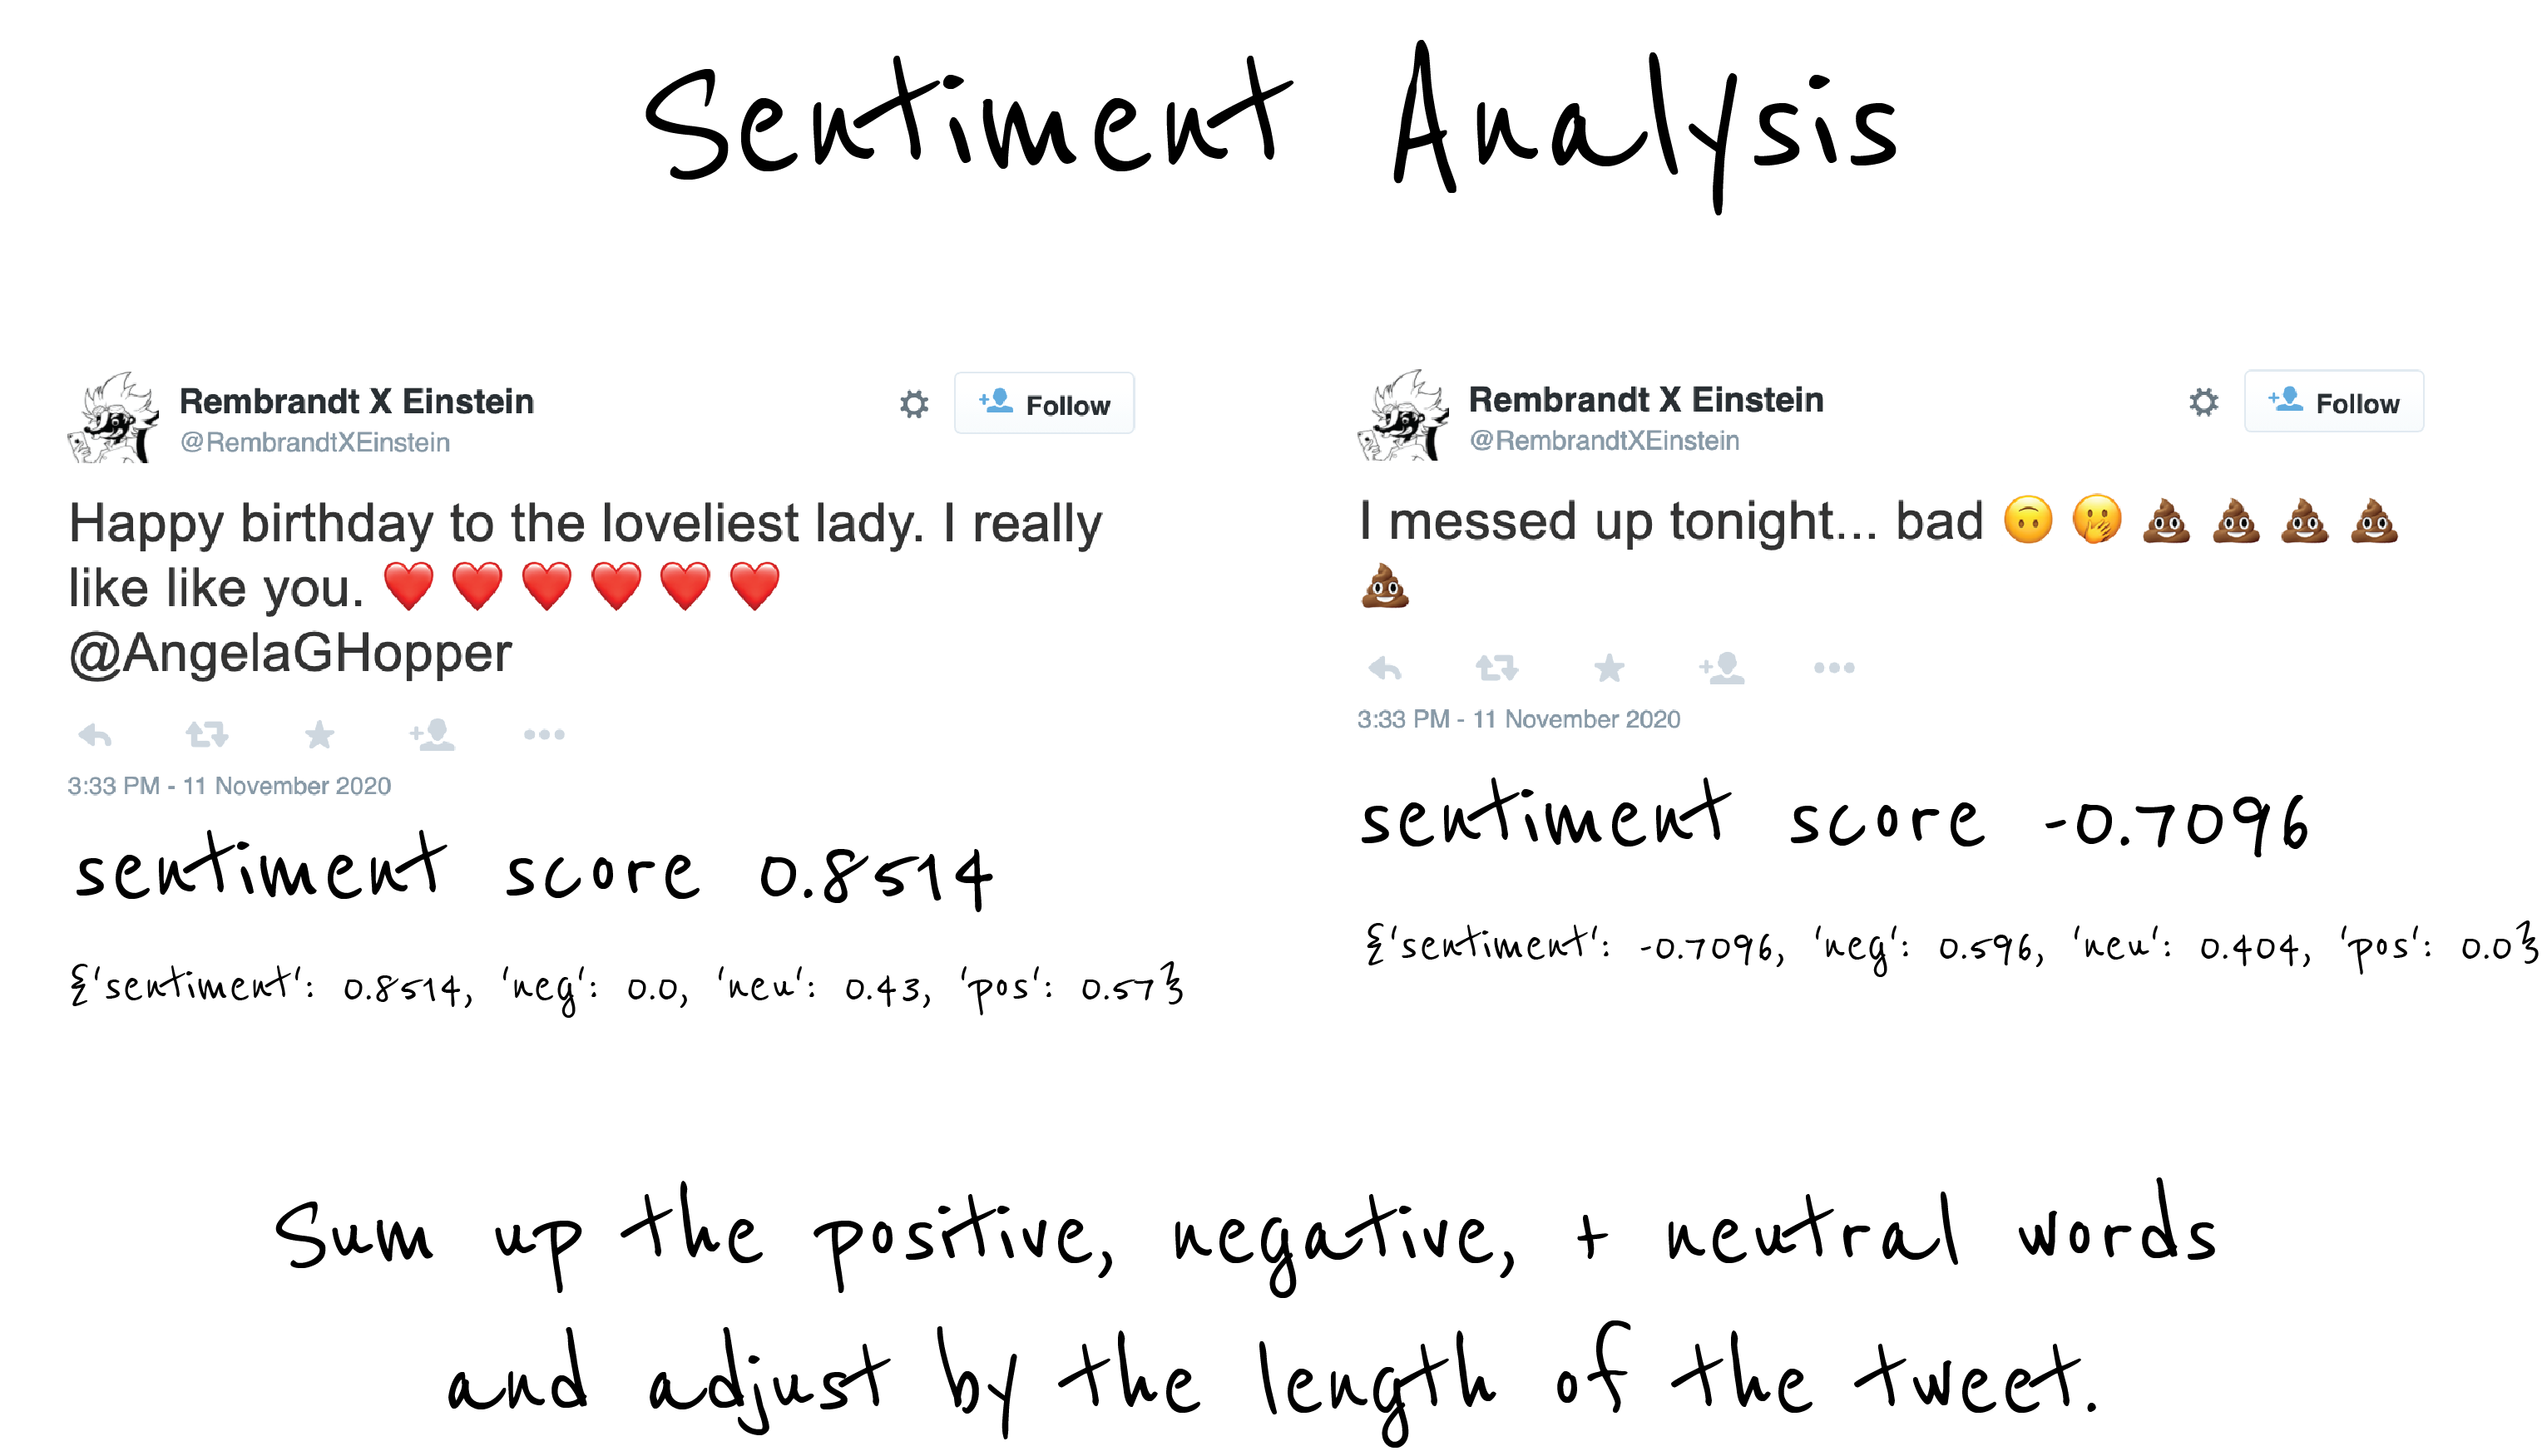 Sentiment Analysis
Rembrandt X Einstein
@RembrandtXEinstein
Follow
Happy birthday to the loveliest lady. I really
like like you. ❤️ ❤️ ❤️ ❤️ ❤️ ❤️
@AngelaGHopper
3:33 PM - 11 November 2020
sentiment score 0.8514
{'sentiment': 0.8514, 'neg': 0.0, 'neu': 0.43, 'pos': 0.57}
Rembrandt X Einstein
@RembrandtXEinstein
Follow
I messed up tonight... bad 🙃 🤭 💩 💩 💩 💩
💩
3:33 PM - 11 November 2020
sentiment score -0.7096
{'sentiment': -0.7096, 'neg': 0.596, 'neu': 0.404, 'pos': 0.0}
Sum up the positive, negative, + neutral words
and adjust by the length of the tweet.